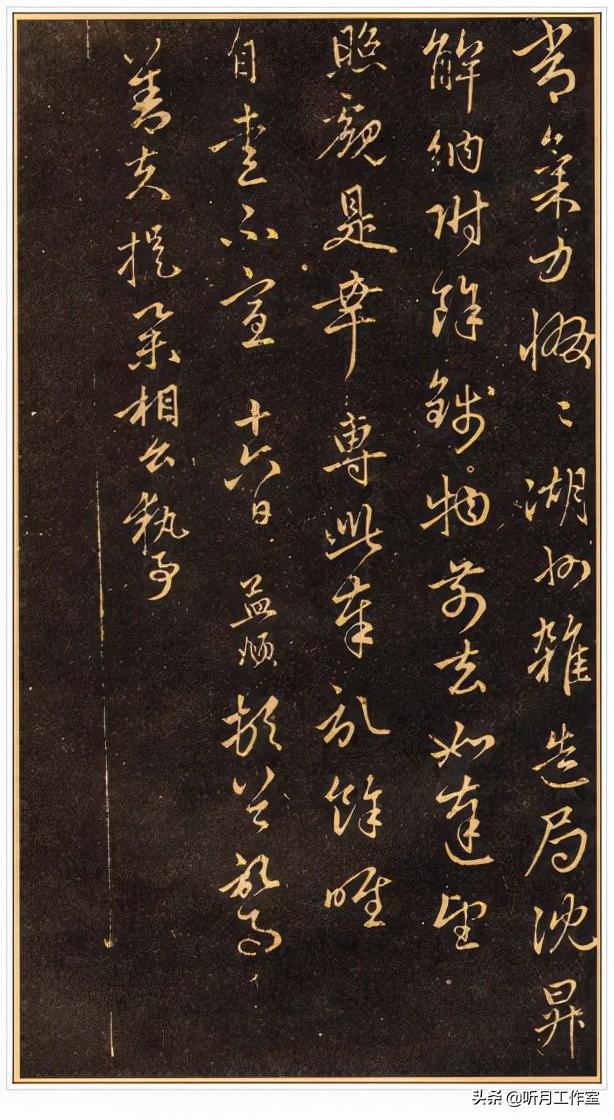 尚氣力惙〻湖州雜造局沈昇
解納附餘錢物前去如達望
照覷是幸專此奉記餘唯
自愛不宣 十六日 孟頫頓首記事
善夫提舉相公執事
头条 @听月工作室